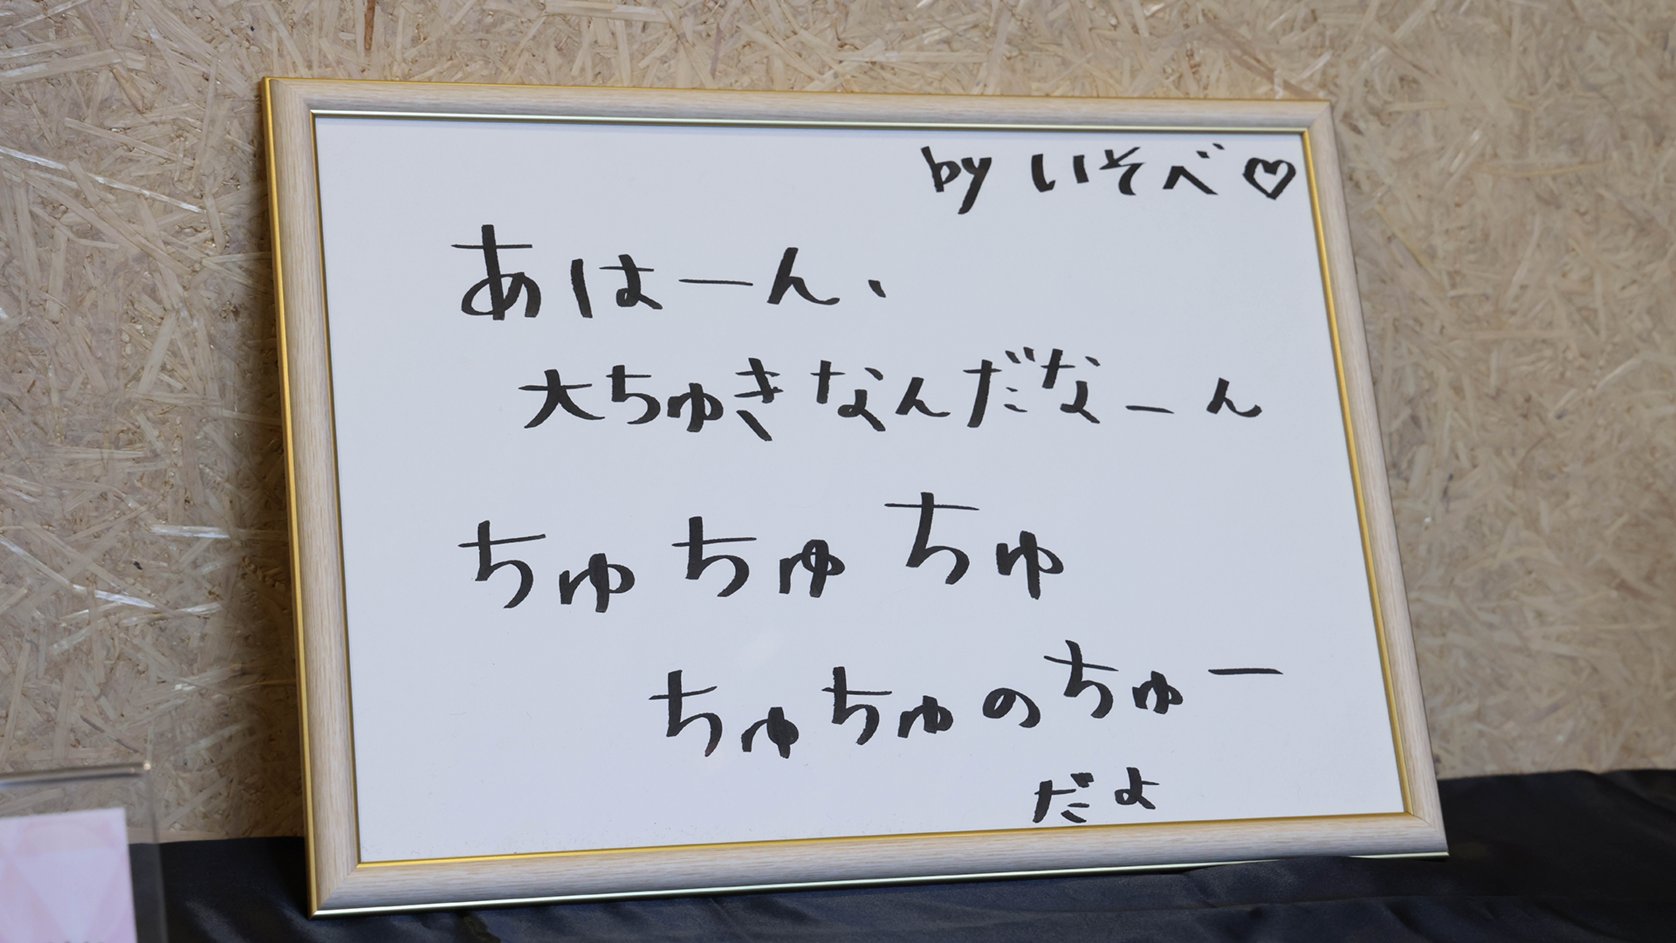 by いそべ♡
あはーん、
大ちゅきなんだなーん
ちゅ ちゅ ちゅ
ちゅちゅのちゅー
だよ